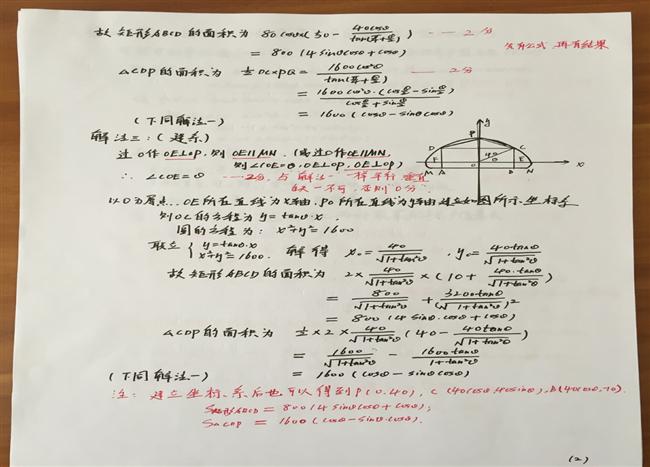 故矩形ABCD的面积为 80cosθ(50 - 40cosθ/tan(π/4+θ/2)) --- 2分
= 800(4sinθcosθ+cosθ)
先有公式,再有结果
△CDP的面积为 ½DC×PQ = 1600cos²θ/tan(π/4+θ/2) --- 2分
= 1600cos²θ·(cosθ/2-sinθ/2)/(cosθ/2+sinθ/2)
= 1600(cosθ-sinθcosθ)
(下同解法一)
解法三:(建系)
过O作OE⊥OP,则OE∥MN.(或过O作OE∥MN,
则∠COE=θ,OE⊥OP)
∴ ∠COE=θ --- 2分,与解法一一样平行 垂直
缺一不可,否则0分
P y D C θ 40 E M A B N x
以O为原点,OE所在直线为x轴,PO所在直线为y轴建立如图所示坐标系
则OC的方程为 y=tanθ·x
圆的方程为: x²+y²=1600
联立 { y=tanθ·x
x²+y²=1600. 解得 x₀=40/√(1+tan²θ), y₀=40tanθ/√(1+tan²θ)
故矩形ABCD的面积为 2×40/√(1+tan²θ)×(10+40·tanθ/√(1+tan²θ))
= 800/√(1+tan²θ) + 3200tanθ/(√(1+tan²θ))²
= 800(4sinθ·cosθ+cosθ)
△CDP的面积为 ½×2×40/√(1+tan²θ)(40-40tanθ/√(1+tan²θ))
= 1600/√(1+tan²θ) - 1600tanθ/(1+tan²θ)
(下同解法一) = 1600(cosθ-sinθcosθ)
注:建立坐标系后也可以得到P(0,40),C(40cosθ,40sinθ),B(40cosθ,-10).
S矩形ABCD=800(4sinθcosθ+cosθ);
S△CDP=1600(cosθ-sinθ·cosθ).
(2)